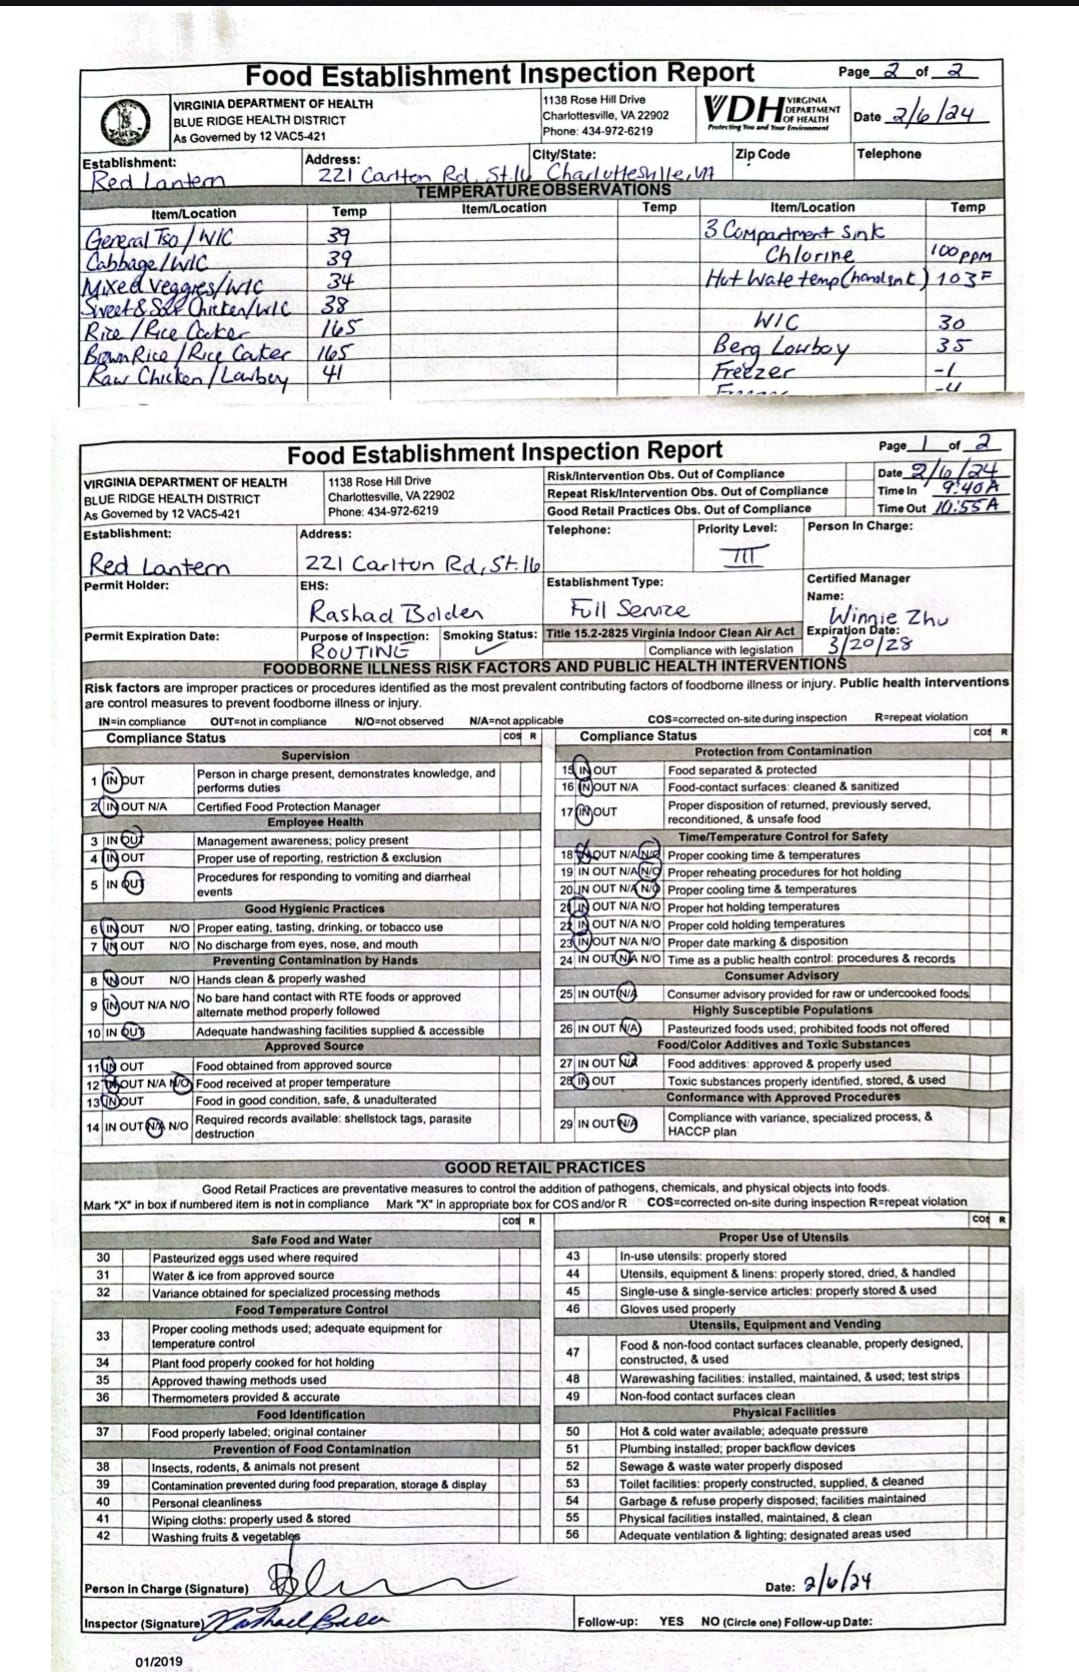 Food Establishment Inspection Report
Page 2 of 2
VIRGINIA DEPARTMENT OF HEALTH
BLUE RIDGE HEALTH DISTRICT
As Governed by 12 VAC5-421
1138 Rose Hill Drive
Charlottesville, VA 22902
Phone: 434-972-6219
VDH VIRGINIA DEPARTMENT OF HEALTH
Protecting You and Your Environment
Date 2/6/24
Establishment: Red Lantern
Address: 221 Carlton Rd, St.16
City/State: Charlottesville, VA
Zip Code
Telephone
TEMPERATURE OBSERVATIONS
Item/Location Temp Item/Location Temp Item/Location Temp
General Tso / WIC 39 3 Compartment Sink
Cabbage / WIC 39 Chlorine 100 ppm
Mixed Veggies/WIC 34 Hot Wate temp (handsink) 103F
Sweet & Sour Chicken/WIC 38
Rice / Rice Cooker 165 WIC 30
Brown Rice / Rice Cooker 165 Berg Lowboy 35
Raw Chicken / Lowboy 41 Freezer -1
-4
Food Establishment Inspection Report
Page 1 of 2
VIRGINIA DEPARTMENT OF HEALTH
BLUE RIDGE HEALTH DISTRICT
As Governed by 12 VAC5-421
1138 Rose Hill Drive
Charlottesville, VA 22902
Phone: 434-972-6219
Risk/Intervention Obs. Out of Compliance
Repeat Risk/Intervention Obs. Out of Compliance
Good Retail Practices Obs. Out of Compliance
Date 2/6/24
Time In 9:40A
Time Out 10:55A
Establishment: Red Lantern
Address: 221 Carlton Rd, St.16
Telephone:
Priority Level: III
Person In Charge:
Permit Holder:
EHS: Rashad Bolden
Establishment Type: Full Service
Certified Manager
Name: Winnie Zhu
Permit Expiration Date:
Purpose of Inspection: ROUTING
Smoking Status: ✓
Title 15.2-2825 Virginia Indoor Clean Air Act
Compliance with legislation
Expiration Date: 3/20/28
FOODBORNE ILLNESS RISK FACTORS AND PUBLIC HEALTH INTERVENTIONS
Risk factors are improper practices or procedures identified as the most prevalent contributing factors of foodborne illness or injury. Public health interventions
are control measures to prevent foodborne illness or injury.
IN=in compliance OUT=not in compliance N/O=not observed N/A=not applicable COS=corrected on-site during inspection R=repeat violation
Compliance Status COS R
Supervision
1 IN OUT Person in charge present, demonstrates knowledge, and
performs duties
2 IN OUT N/A Certified Food Protection Manager
Employee Health
3 IN OUT Management awareness; policy present
4 IN OUT Proper use of reporting, restriction & exclusion
5 IN OUT Procedures for responding to vomiting and diarrheal
events
Good Hygienic Practices
6 IN OUT N/O Proper eating, tasting, drinking, or tobacco use
7 IN OUT N/O No discharge from eyes, nose, and mouth
Preventing Contamination by Hands
8 IN OUT N/O Hands clean & properly washed
9 IN OUT N/A N/O No bare hand contact with RTE foods or approved
alternate method properly followed
10 IN OUT Adequate handwashing facilities supplied & accessible
Approved Source
11 IN OUT Food obtained from approved source
12 IN OUT N/A N/O Food received at proper temperature
13 IN OUT Food in good condition, safe, & unadulterated
14 IN OUT N/A N/O Required records available: shellstock tags, parasite
destruction
Compliance Status COS R
Protection from Contamination
15 IN OUT Food separated & protected
16 IN OUT N/A Food-contact surfaces: cleaned & sanitized
17 IN OUT Proper disposition of returned, previously served,
reconditioned, & unsafe food
Time/Temperature Control for Safety
18 IN OUT N/A N/O Proper cooking time & temperatures
19 IN OUT N/A N/O Proper reheating procedures for hot holding
20 IN OUT N/A N/O Proper cooling time & temperatures
21 IN OUT N/A N/O Proper hot holding temperatures
22 IN OUT N/A N/O Proper cold holding temperatures
23 IN OUT N/A N/O Proper date marking & disposition
24 IN OUT N/A N/O Time as a public health control: procedures & records
Consumer Advisory
25 IN OUT N/A Consumer advisory provided for raw or undercooked foods
Highly Susceptible Populations
26 IN OUT N/A Pasteurized foods used; prohibited foods not offered
Food/Color Additives and Toxic Substances
27 IN OUT N/A Food additives: approved & properly used
28 IN OUT Toxic substances properly identified, stored, & used
Conformance with Approved Procedures
29 IN OUT N/A Compliance with variance, specialized process, &
HACCP plan
GOOD RETAIL PRACTICES
Good Retail Practices are preventative measures to control the addition of pathogens, chemicals, and physical objects into foods.
Mark "X" in box if numbered item is not in compliance Mark "X" in appropriate box for COS and/or R COS=corrected on-site during inspection R=repeat violation
COS R
Safe Food and Water
30 Pasteurized eggs used where required
31 Water & ice from approved source
32 Variance obtained for specialized processing methods
Food Temperature Control
33 Proper cooling methods used; adequate equipment for
temperature control
34 Plant food properly cooked for hot holding
35 Approved thawing methods used
36 Thermometers provided & accurate
Food Identification
37 Food properly labeled; original container
Prevention of Food Contamination
38 Insects, rodents, & animals not present
39 Contamination prevented during food preparation, storage & display
40 Personal cleanliness
41 Wiping cloths: properly used & stored
42 Washing fruits & vegetables
COS R
Proper Use of Utensils
43 In-use utensils: properly stored
44 Utensils, equipment & linens: properly stored, dried, & handled
45 Single-use & single-service articles: properly stored & used
46 Gloves used properly
Utensils, Equipment and Vending
47 Food & non-food contact surfaces cleanable, properly designed,
constructed, & used
48 Warewashing facilities: installed, maintained, & used; test strips
49 Non-food contact surfaces clean
Physical Facilities
50 Hot & cold water available; adequate pressure
51 Plumbing installed; proper backflow devices
52 Sewage & waste water properly disposed
53 Toilet facilities: properly constructed, supplied, & cleaned
54 Garbage & refuse properly disposed; facilities maintained
55 Physical facilities installed, maintained, & clean
56 Adequate ventilation & lighting; designated areas used
Person In Charge (Signature)
Date: 2/6/24
Inspector (Signature)
Follow-up: YES NO (Circle one) Follow-up Date:
01/2019